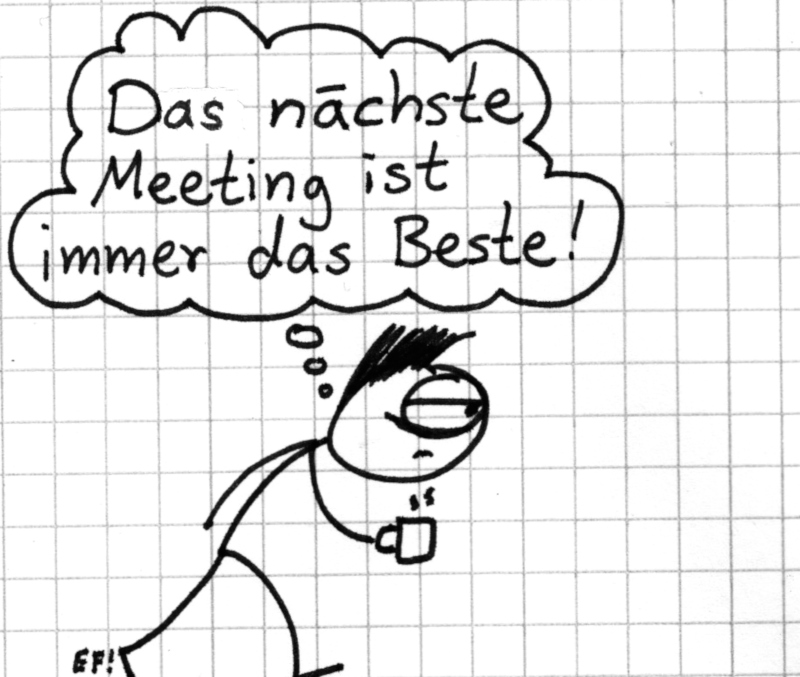 Das nächste
Meeting ist
immer das Beste!
EF!